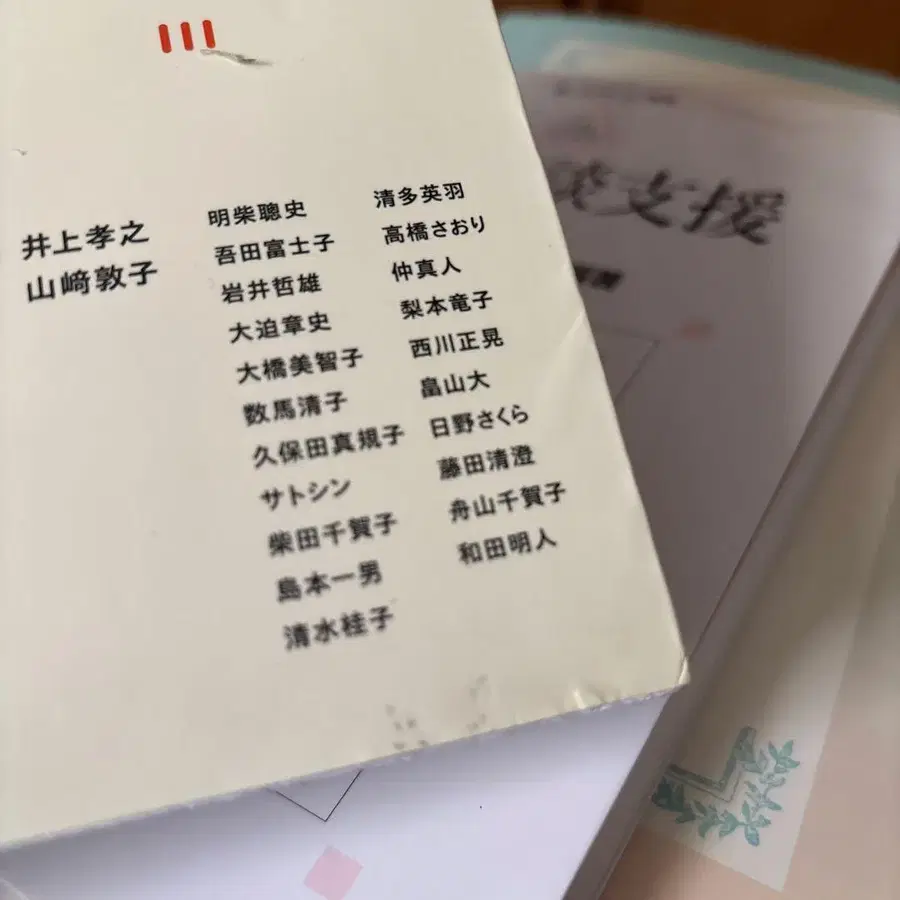 井上孝之
山﨑敦子
明柴聰史
吾田富士子
岩井哲雄
大迫章史
大橋美智子
数馬清子
久保田真規子
サトシン
柴田千賀子
島本一男
清水桂子
清多英羽
高橋さおり
仲真人
梨本竜子
西川正晃
畠山大
日野さくら
藤田清澄
舟山千賀子
和田明人
支援